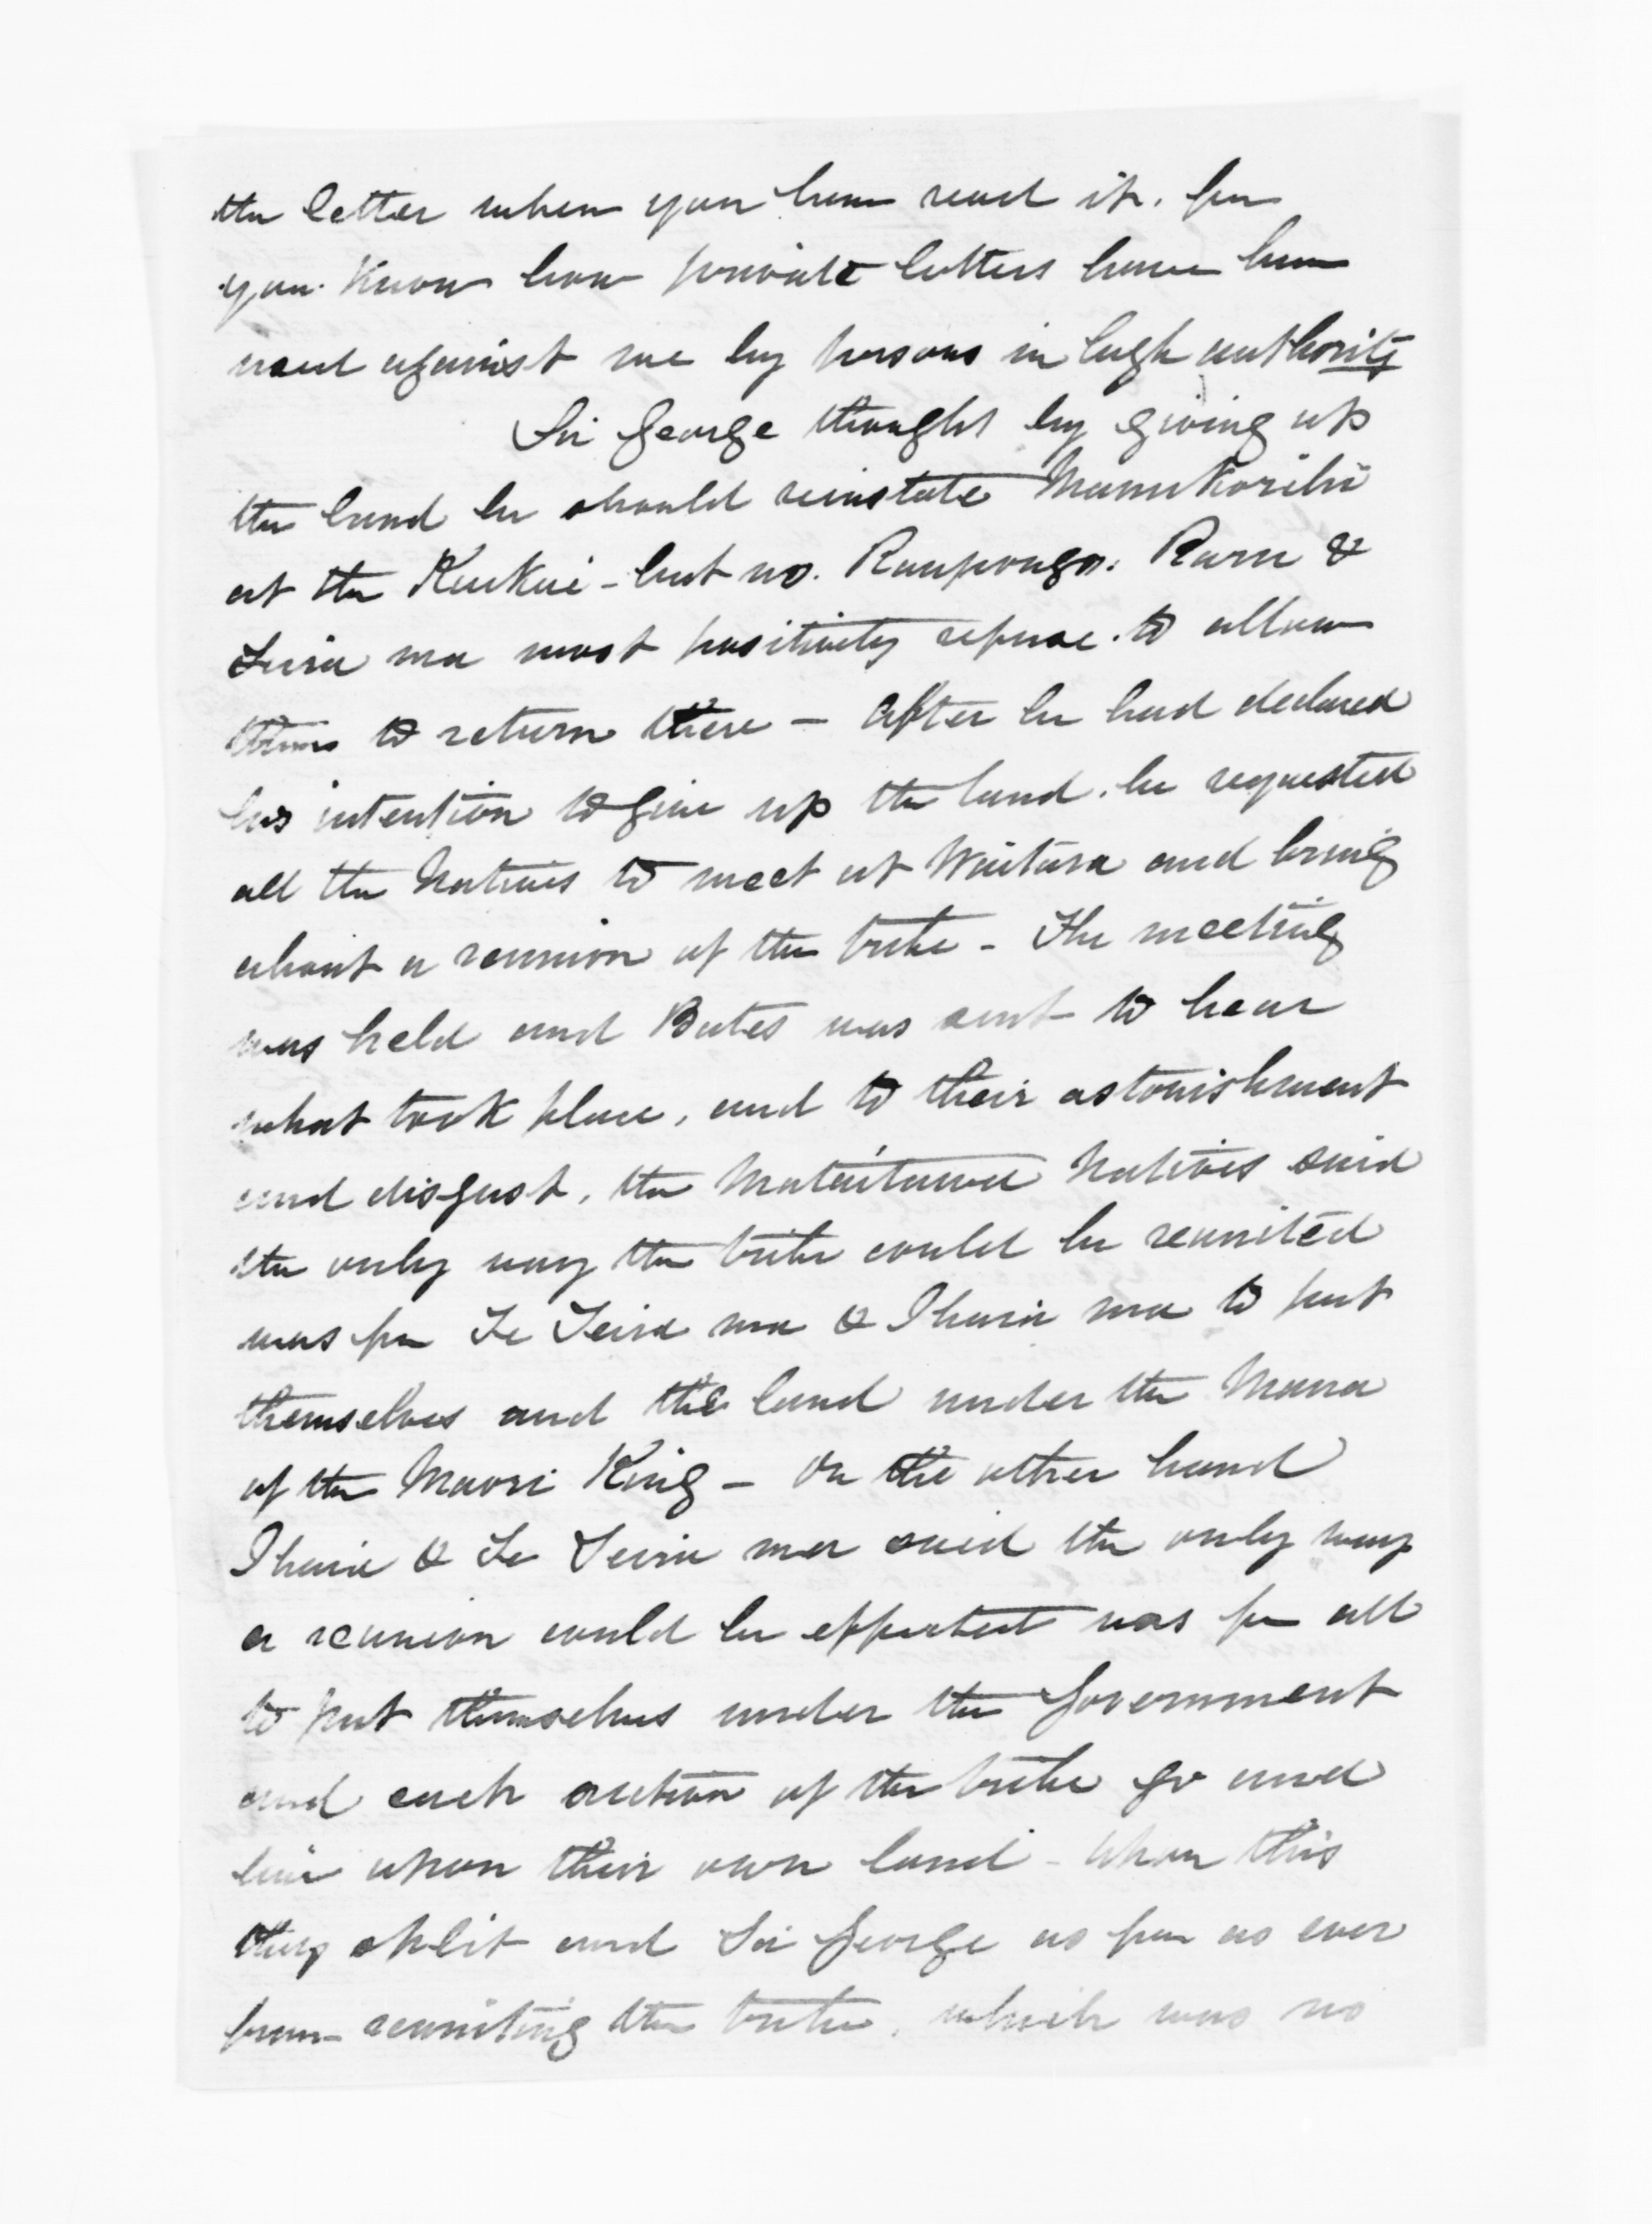 the letter when you have read it. for
you know how private letters have been
used against me by persons in high authority
Sir George thought by giving up
the land he should reinstate Manukorihi
at the Kuikui - but no. Raupongo. Raru &
Teira ma most positively refuse. to allow
them to return there - After he had declared
his intention to give up the land. he requested
all the Natives to meet at Waitara and bring
about a reunion of the tribe - The meeting
was held and Bates was sent to hear
what took place, and to their astonishment
and disgust, the Mataitawa Natives said
the only way the tribe could be reunited
was for Te Teira ma & Ihaia ma to put
themselves and the land under the Mana
of the Maori King - On the other hand
Ihaia & Te Teira ma said the only way
a reunion could be effected was for all
to put themselves under the Government
and each section of the tribe go and
live upon their own land - Upon this
they split and Sir George as far as ever
from reuniting the tribe, which was no